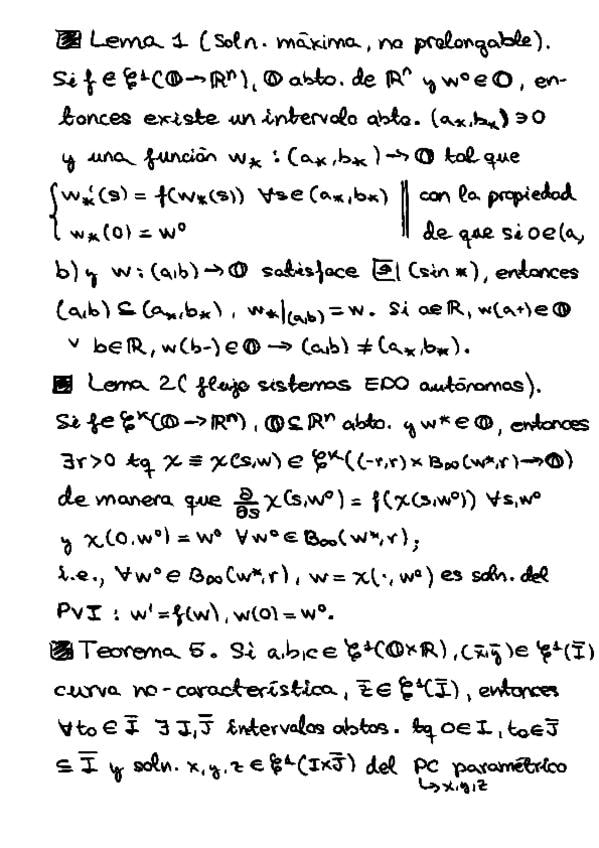 Lema 1 (Soln. máxima, no prolongable).
Si f ∈ 𝒞¹(𝕆→ℝⁿ), 𝕆 abto. de ℝⁿ y w⁰∈𝕆, en-
tonces existe un intervalo abto. (a*,b*)∋0
y una función w* : (a*,b*)→𝕆 tal que
{ w*'(s) = f(w*(s)) ∀s∈(a*,b*) ‖ con la propiedad
{ w*(0) = w⁰ ‖ de que si 0∈(a,
b) y w:(a,b)→𝕆 satisface (sin *), entonces
(a,b)⊆(a*,b*), w*|(a,b)=w. Si a∈ℝ, w(a+)∈𝕆
∨ b∈ℝ, w(b-)∈𝕆 → (a,b)≠(a*,b*).
Lema 2 (flujo sistemas EDO autónomas).
Si f∈𝒞ᵏ(𝕆→ℝⁿ), 𝕆⊆ℝⁿ abto. y w*∈𝕆, entonces
∃r>0 tq χ ≡ χ(s,w) ∈ 𝒞ᵏ((-r,r)×B∞(w*,r)→𝕆)
de manera que ∂/∂s χ(s,w⁰) = f(χ(s,w⁰)) ∀s,w⁰
y χ(0,w⁰)=w⁰ ∀w⁰∈B∞(w*,r);
i.e., ∀w⁰∈B∞(w*,r), w=χ(·,w⁰) es soln. del
PVI : w'=f(w), w(0)=w⁰.
Teorema 5. Si a,b,c∈𝒞¹(𝕆×ℝ), (x̄,ȳ)∈𝒞¹(Ī)
curva no-característica, z̄∈𝒞¹(Ī), entonces
∀t₀∈Ī ∃I,J̄ intervalos abtos. tq 0∈I, t₀∈J̄
⊆Ī y soln. x,y,z∈𝒞¹(I×J̄) del PC paramétrico
↳x,y,z